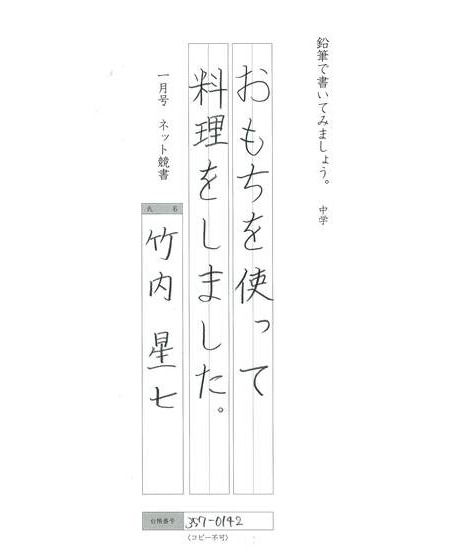 鉛筆で書いてみましょう。 中学
おもちを使って
料理をしました。
一月号 ネット競書
氏名
竹内 星七
台帳番号 357-0142
(コピー不可)